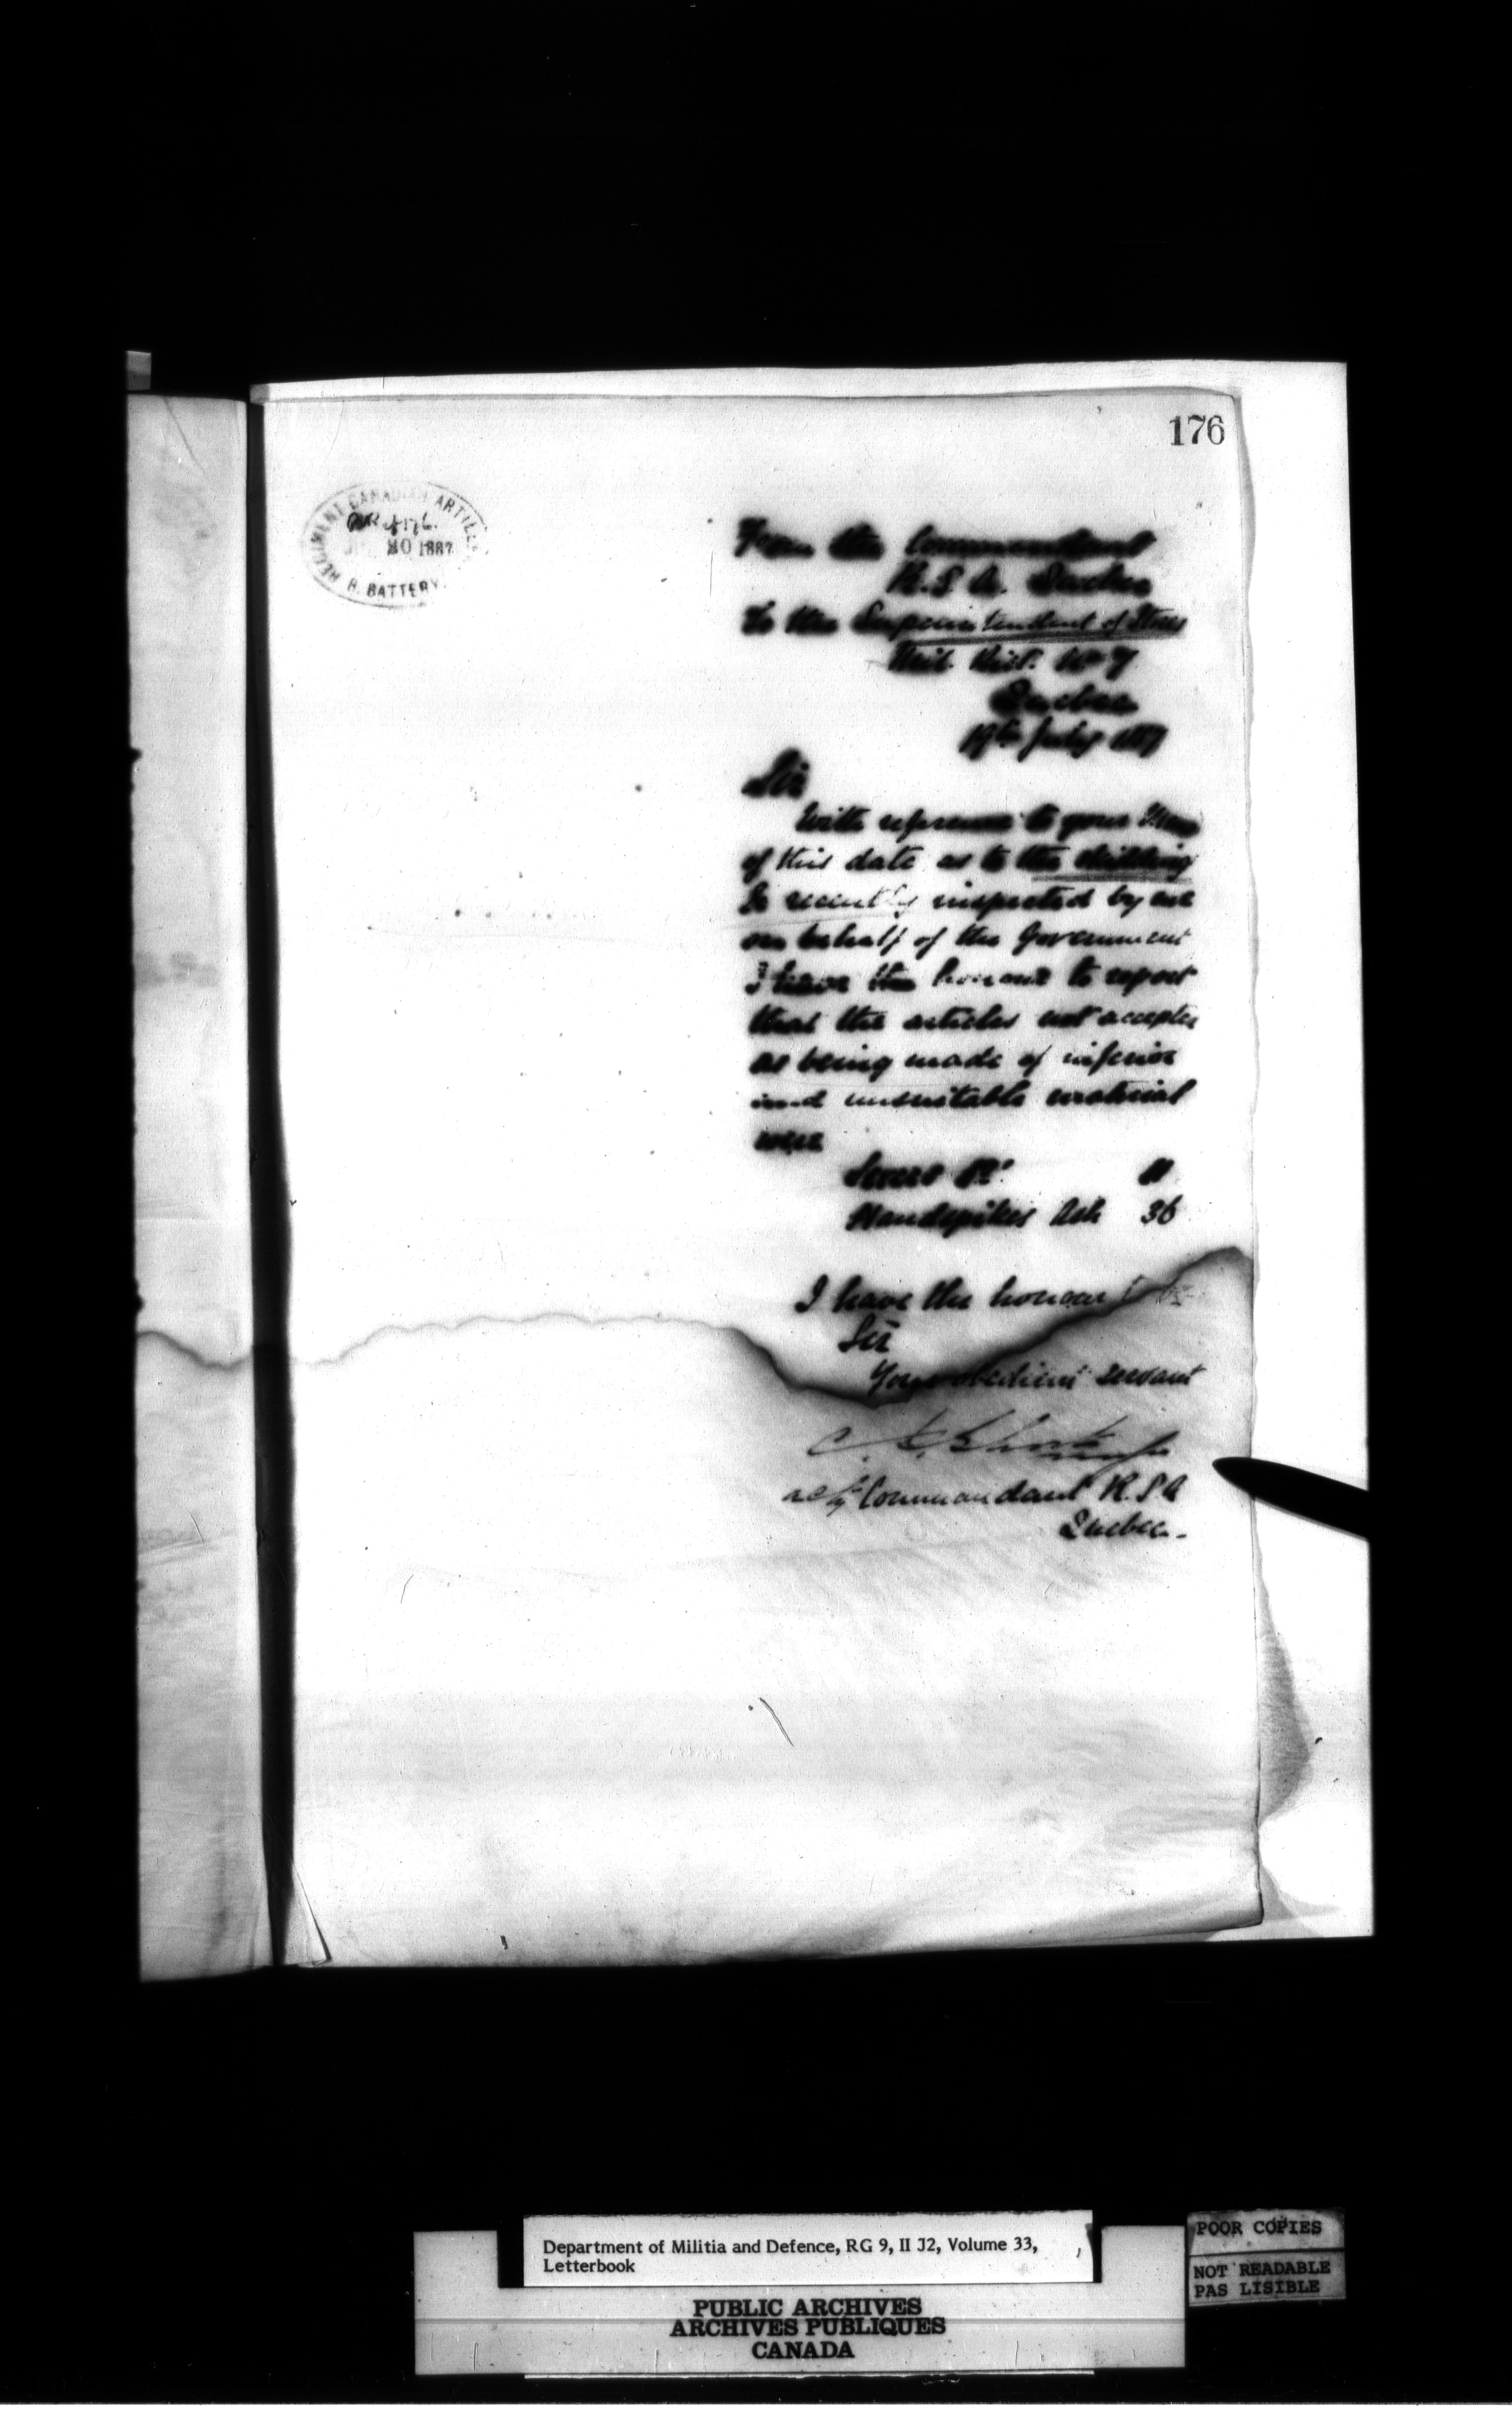 176
REGIMENT CANADIAN ARTILLERY
20 1887
B. BATTERY.
From the Commandant
R.S.A. Quebec
To the Superintendent of Stores
Mil. Dist. No 7
Quebec
19th July 1887
Sir
With reference to your Memo
of this date as to the
recently inspected by me
on behalf of the Government
I have the honour to report
that the articles not accepted
as being made of inferior
and unsuitable material
were
Handspikes Ash 36
I have the honour to be
Sir
Your obedient servant
Commandant R.S.A
Quebec.
Department of Militia and Defence, RG 9, II J2, Volume 33,
Letterbook
PUBLIC ARCHIVES
ARCHIVES PUBLIQUES
CANADA
POOR COPIES
NOT READABLE
PAS LISIBLE